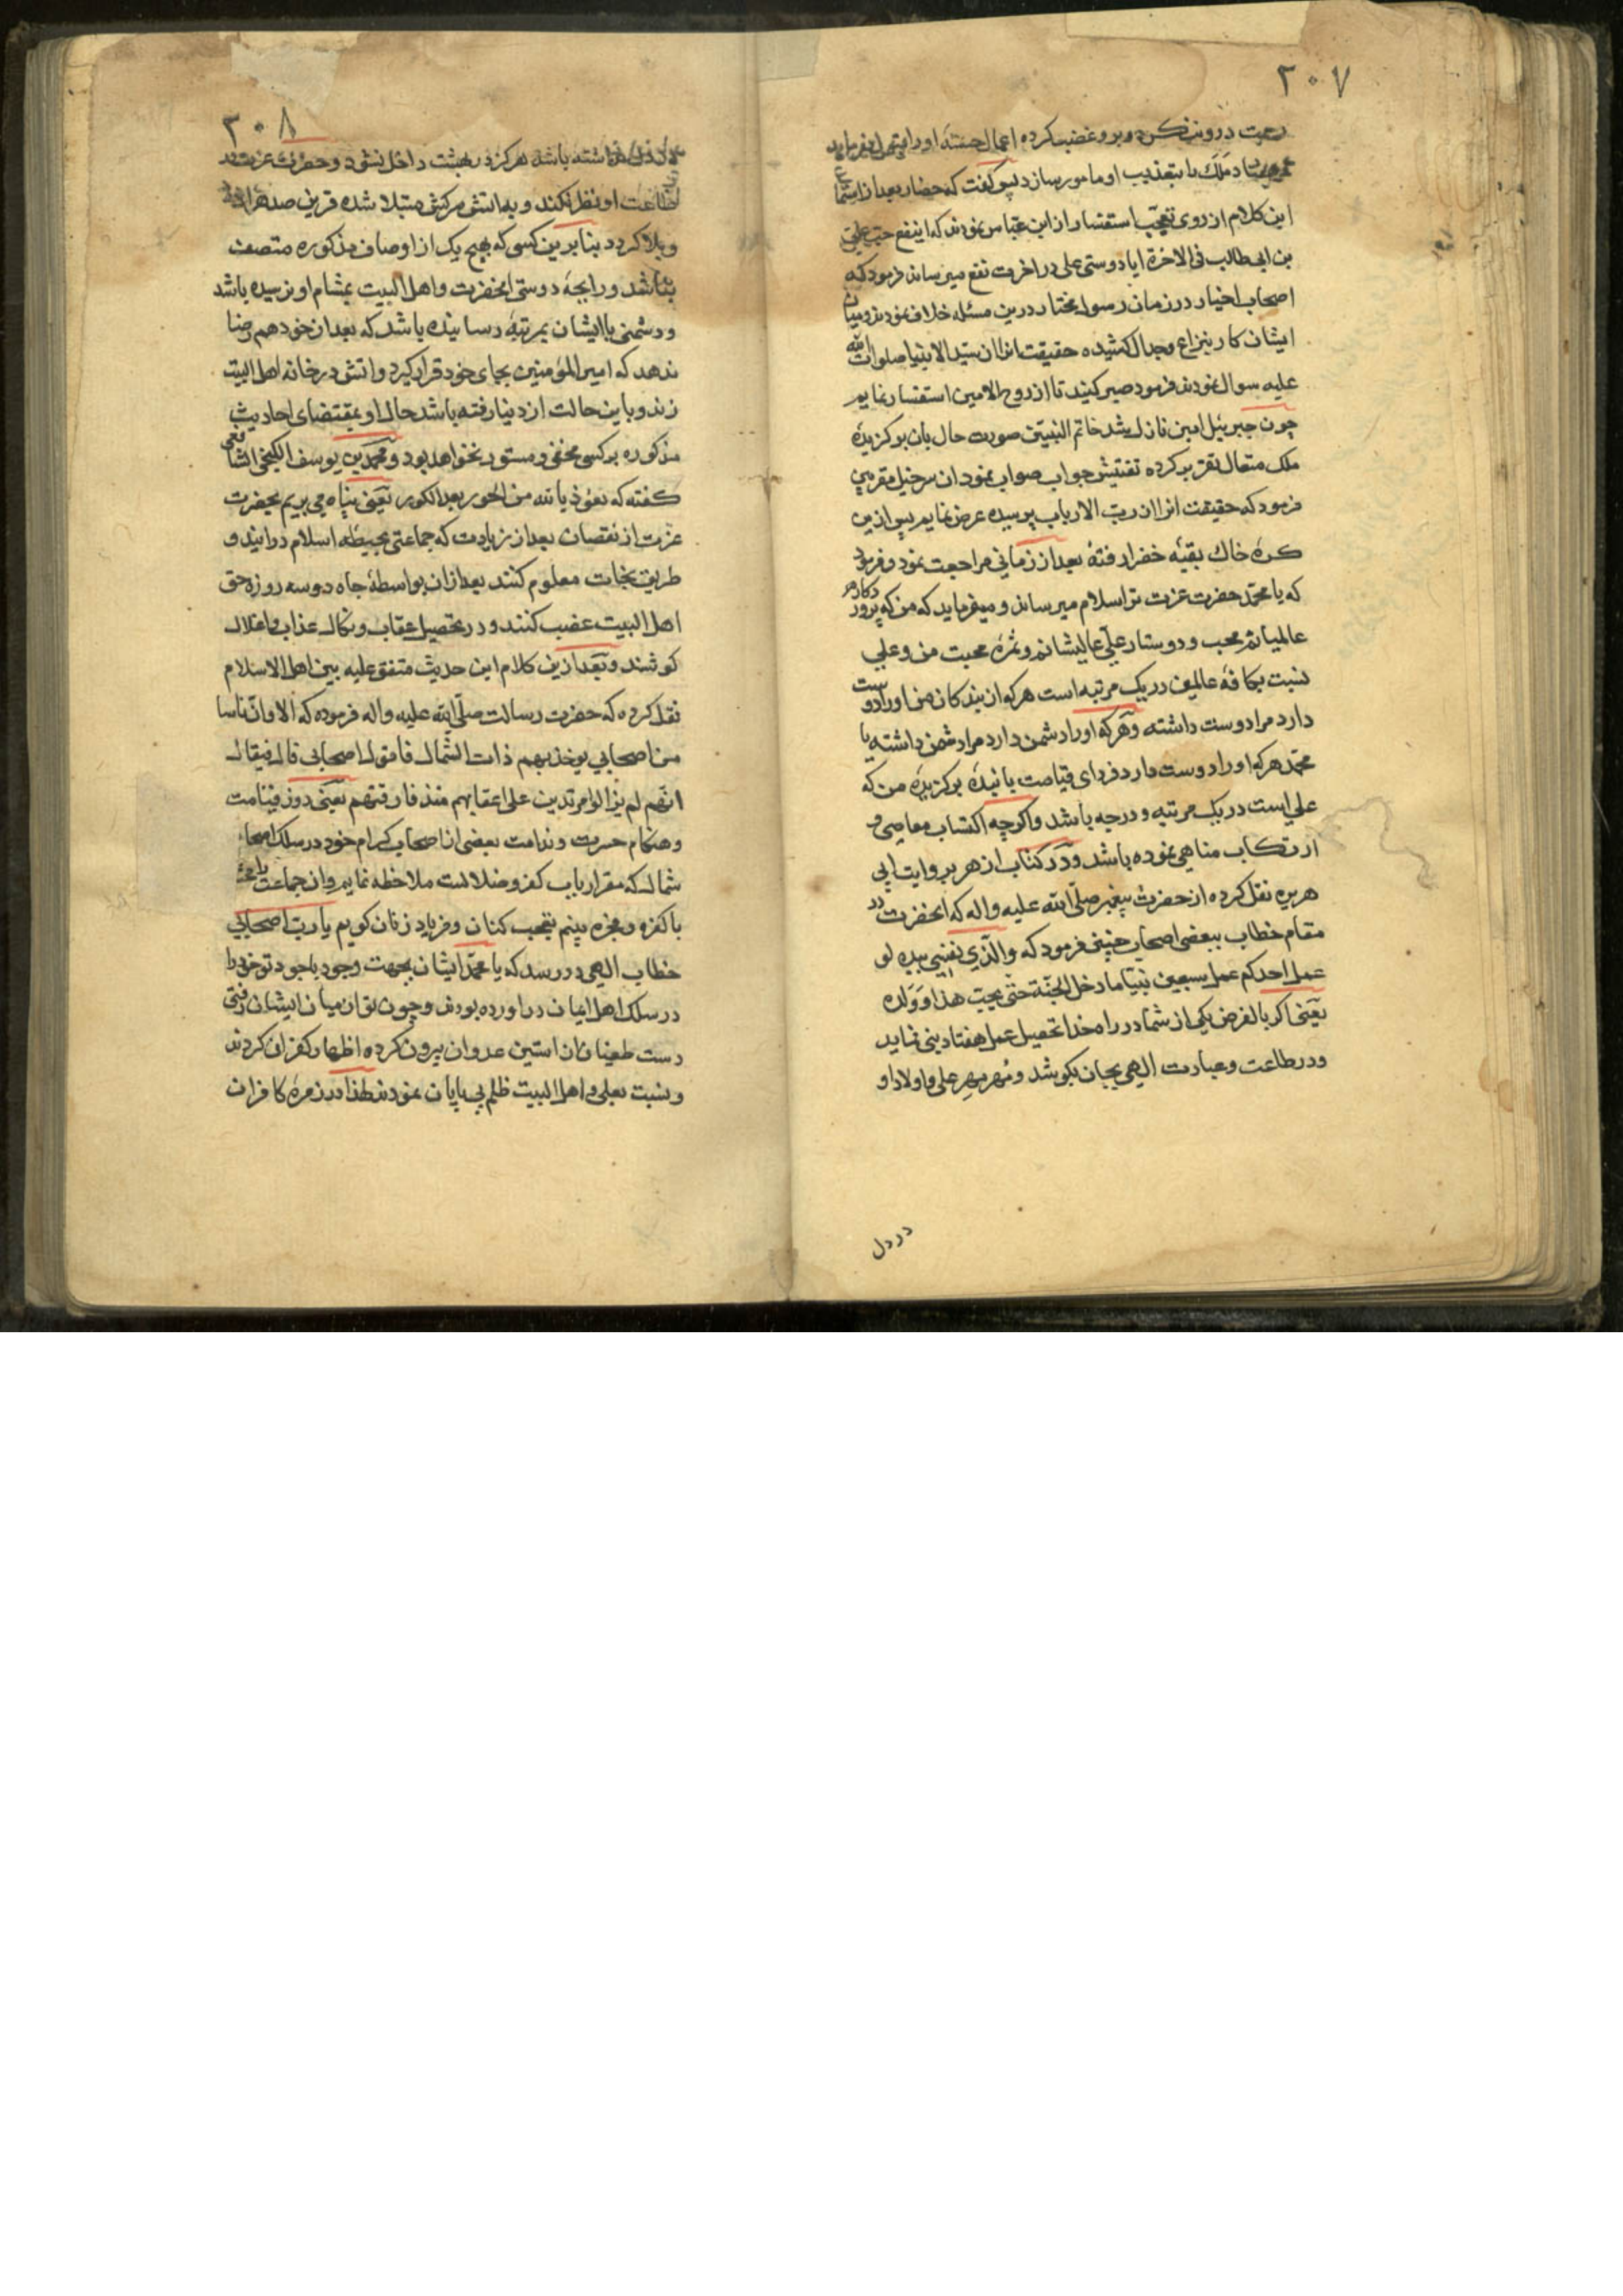 ۳۰۷
رحمت درو بنکرد و برو غضب کرده اعمال حسنهٔ او را
ملک را بتعذیب او مامور سازد پس گفت که حضار بعد از استماع
این کلام از روی تعجّب استفسار از ابن عبّاس نمودند که اینفع حبّ علیّ
بن ابی طالب فی الاخرة ایا دوستی علی در اخرت نفع میرساند فرمود که
اصحاب اخیار در زمان رسول مختار درین مسئله خلاف نمودند و میان
ایشان کار بنزاع و جدال کشیده حقیقت انرا از سیّد الانبیا صلوات اللّه
علیه سوال نمودند فرمود صبر کنید تا از روح الامین استفسار نمایم
چون جبرئیل امین نازل شد خاتم النبیّین صورت حال بان برکزیدهٔ
ملک متعال تقریر کرده تفتیش جواب صواب نمود ان سرخیل مقربین
فرمود که حقیقت انرا از ربّ الارباب پرسیده عرض نمایم پس ازین
کرهٔ خاک بقبّه خضرا رفته بعد از زمانی مراجعت نمود و فرمود
که یا محمّد حضرت عزت ترا سلام میرساند و میفرماید که من که پرورد کار
عالمیانم محب و دوستار علیّ عالیشانم و ثمرهٔ محبت من و علی
نسبت بکافهٔ عالمین در یک مرتبه است هر که از بندکان من او را دوست
دارد مرا دوست داشته و هر که او را دشمن دارد مرا دشمن داشته یا
محمّد هر که او را دوست دارد فردای قیامت با بندهٔ برکزیدهٔ من که
علی است در یک مرتبه و درجه باشد و اکرچه اکتساب معاصی و
ارتکاب مناهی نموده باشد و در کتاب ازهر بروایت ابی
هریره نقل کرده از حضرت پیغمبر صلّی اللّه علیه و اله که انحضرت در
مقام خطاب ببعضی اصحاب چنین فرمود که و الّذی نفسی بیده لو
عمل احدکم عمل سبعین نبیّا ما دخل الجنّة حتّی یحبّ هذا و ولده
یعنی اکر بالفرض یکی از شما در راه خدا تحصیل عمل هفتاد نبی نماید
و در طاعت و عبادت الهی بجان بکوشد و مُهر مِهرِ علی و اولاد او
در دل
۳۰۸
نداشته باشد هرکز در بهشت داخل نشود و حضرت عزت در
طاعت او نظر نکند و به اتش سرکش مبتلا شده قرین صد هزار
و بلا کردد بنابرین کسی که بهیچ یک از اوصاف مذکوره متصف
نباشد و رایحهٔ دوستی انحضرت و اهل البیت بمشام او نرسیده باشد
و دشمنی با ایشان بمرتبهٔ رسانیده باشد که بعد از خود هم رضا
ندهد که امیر المؤمنین بجای خود قرار کیرد و اتش در خانه اهل البیت
زند و باین حالت از دنیا رفته باشد حال او بمقتضای احادیث
مذکوره بر کسی مخفی و مستور نخواهد بود و محمّد بن یوسف الکنجی الشافعی
کفته که نعوذ باللّه من الحور بعد الکور یعنی پناه می بریم بحضرت
عزت از نقصان بعد از زیادت که جماعتی بحیطهٔ اسلام درایند و
طریق نجات معلوم کنند بعد از ان بواسطهٔ جاه دو سه روزه حق
اهل البیت غصب کنند و در تحصیل عقاب و نکال عذاب و اغلال
کوشند و بعد ازین کلام این حدیث متفق علیه بین اهل الاسلام
نقل کرده که حضرت رسالت صلّی اللّه علیه و اله فرموده که الا و انّ ناسا
من اصحابی یوخذ بهم ذات الشمال فاقول اصحابی قال فیقال
انّهم لم یزالوا مرتدین علی اعقابهم منذ فارقتهم یعنی روز قیامت
و هنکام حسرت و ندامت بعضی از اصحاب کرام خود در سلک اصحاب
شمال که مقر ارباب کفر و ضلالست ملاحظه نمایم و ان جماعت را
با کفره و فجره بینم تعجب کنان و فریاد زنان کویم یا ربّ اصحابی
خطاب الهی در رسد که یا محمّد ایشان بجهت وجود باجود تو خود را
در سلک اهل ایمان در اورده بودند و چون تو از میان ایشان رفتی
دست طغیان از استین عدوان بیرون کرده اظهار کفران کردند
و نسبت بعلی و اهل البیت ظلم بی پایان نمودند لهذا در زمرهٔ کافران